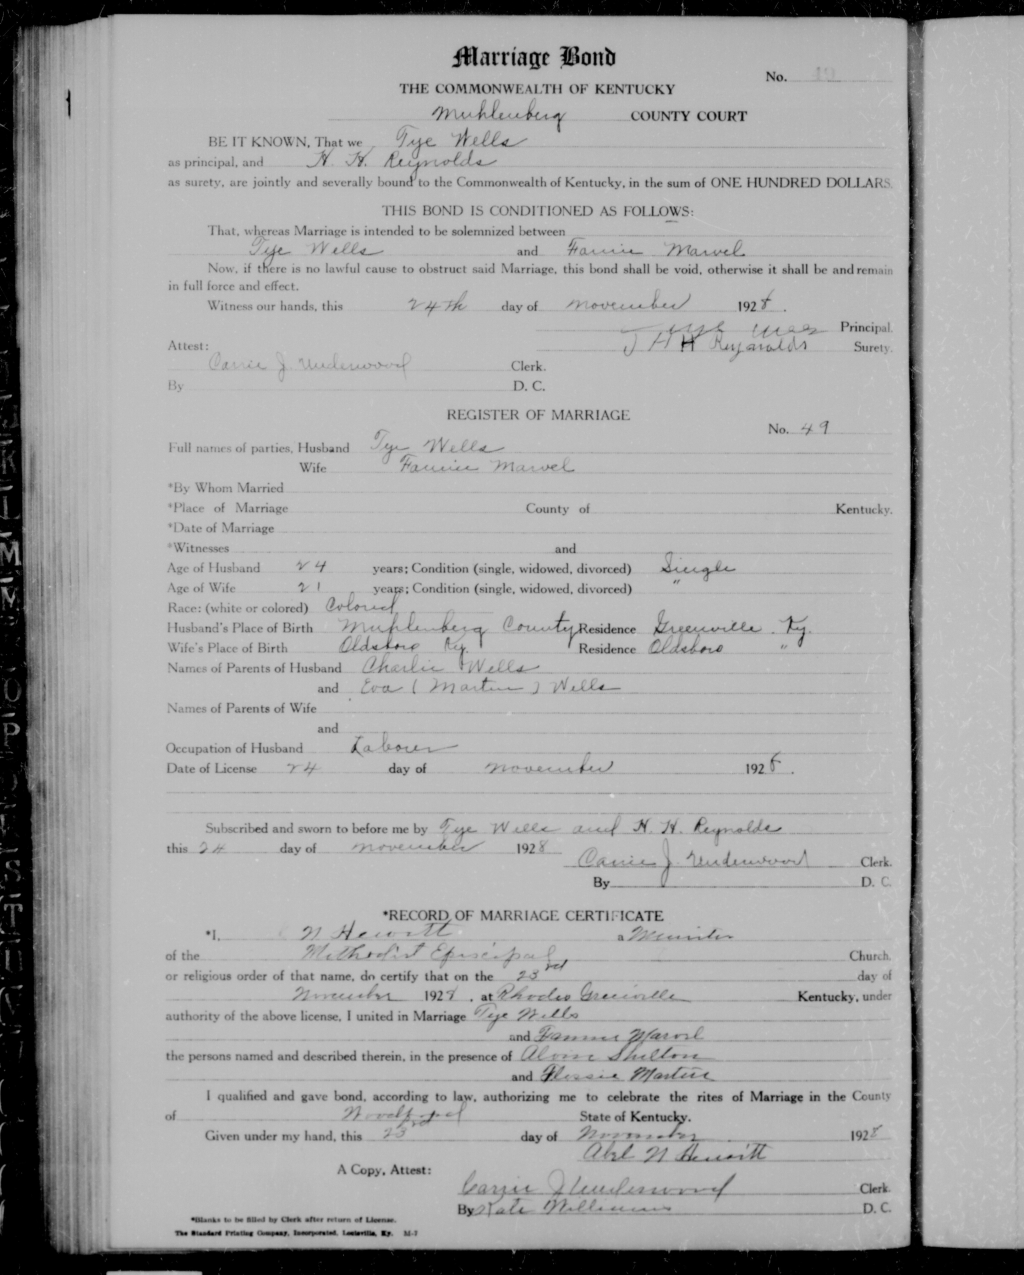 Marriage Bond
No.
THE COMMONWEALTH OF KENTUCKY
Muhlenberg COUNTY COURT
BE IT KNOWN, That we Tye Wells
as principal, and H. H. Reynolds
as surety, are jointly and severally bound to the Commonwealth of Kentucky, in the sum of ONE HUNDRED DOLLARS.
THIS BOND IS CONDITIONED AS FOLLOWS:
That, whereas Marriage is intended to be solemnized between
Tye Wells and Fannie Marvel
Now, if there is no lawful cause to obstruct said Marriage, this bond shall be void, otherwise it shall be and remain
in full force and effect.
Witness our hands, this 24th day of November 1928.
Principal.
Attest: H H Reynolds Surety.
Carrie J. Underwood Clerk.
By D. C.
REGISTER OF MARRIAGE
No. 49
Full names of parties, Husband Tye Wells
Wife Fannie Marvel
*By Whom Married
*Place of Marriage County of Kentucky.
*Date of Marriage
*Witnesses and
Age of Husband 24 years; Condition (single, widowed, divorced) Single
Age of Wife 21 years; Condition (single, widowed, divorced) "
Race: (white or colored) Colored
Husband's Place of Birth Muhlenberg County Residence Greenville Ky.
Wife's Place of Birth Oldsboro Ky. Residence Oldsboro "
Names of Parents of Husband Charlie Wells
and Eva (Martin) Wells
Names of Parents of Wife
and
Occupation of Husband Laborer
Date of License 24 day of November 1928.
Subscribed and sworn to before me by Tye Wells and H. H. Reynolds
this 24 day of November 1928
Carrie J. Underwood Clerk.
By D. C.
*RECORD OF MARRIAGE CERTIFICATE
*I, N Hewitt a Minister
of the Methodist Episcopal Church.
or religious order of that name, do certify that on the 23rd day of
November 1928, at Rhodes Greenville Kentucky, under
authority of the above license, I united in Marriage Tye Wells
and Fannie Marvel
the persons named and described therein, in the presence of Shelton
and Flossie Martin
I qualified and gave bond, according to law, authorizing me to celebrate the rites of Marriage in the County
of State of Kentucky.
Given under my hand, this 23rd day of November 1928
N Hewitt
A Copy, Attest:
Carrie J Underwood Clerk.
By Kate Williams D. C.
*Blanks to be filled by Clerk after return of License.
The Standard Printing Company, Incorporated, Louisville, Ky.